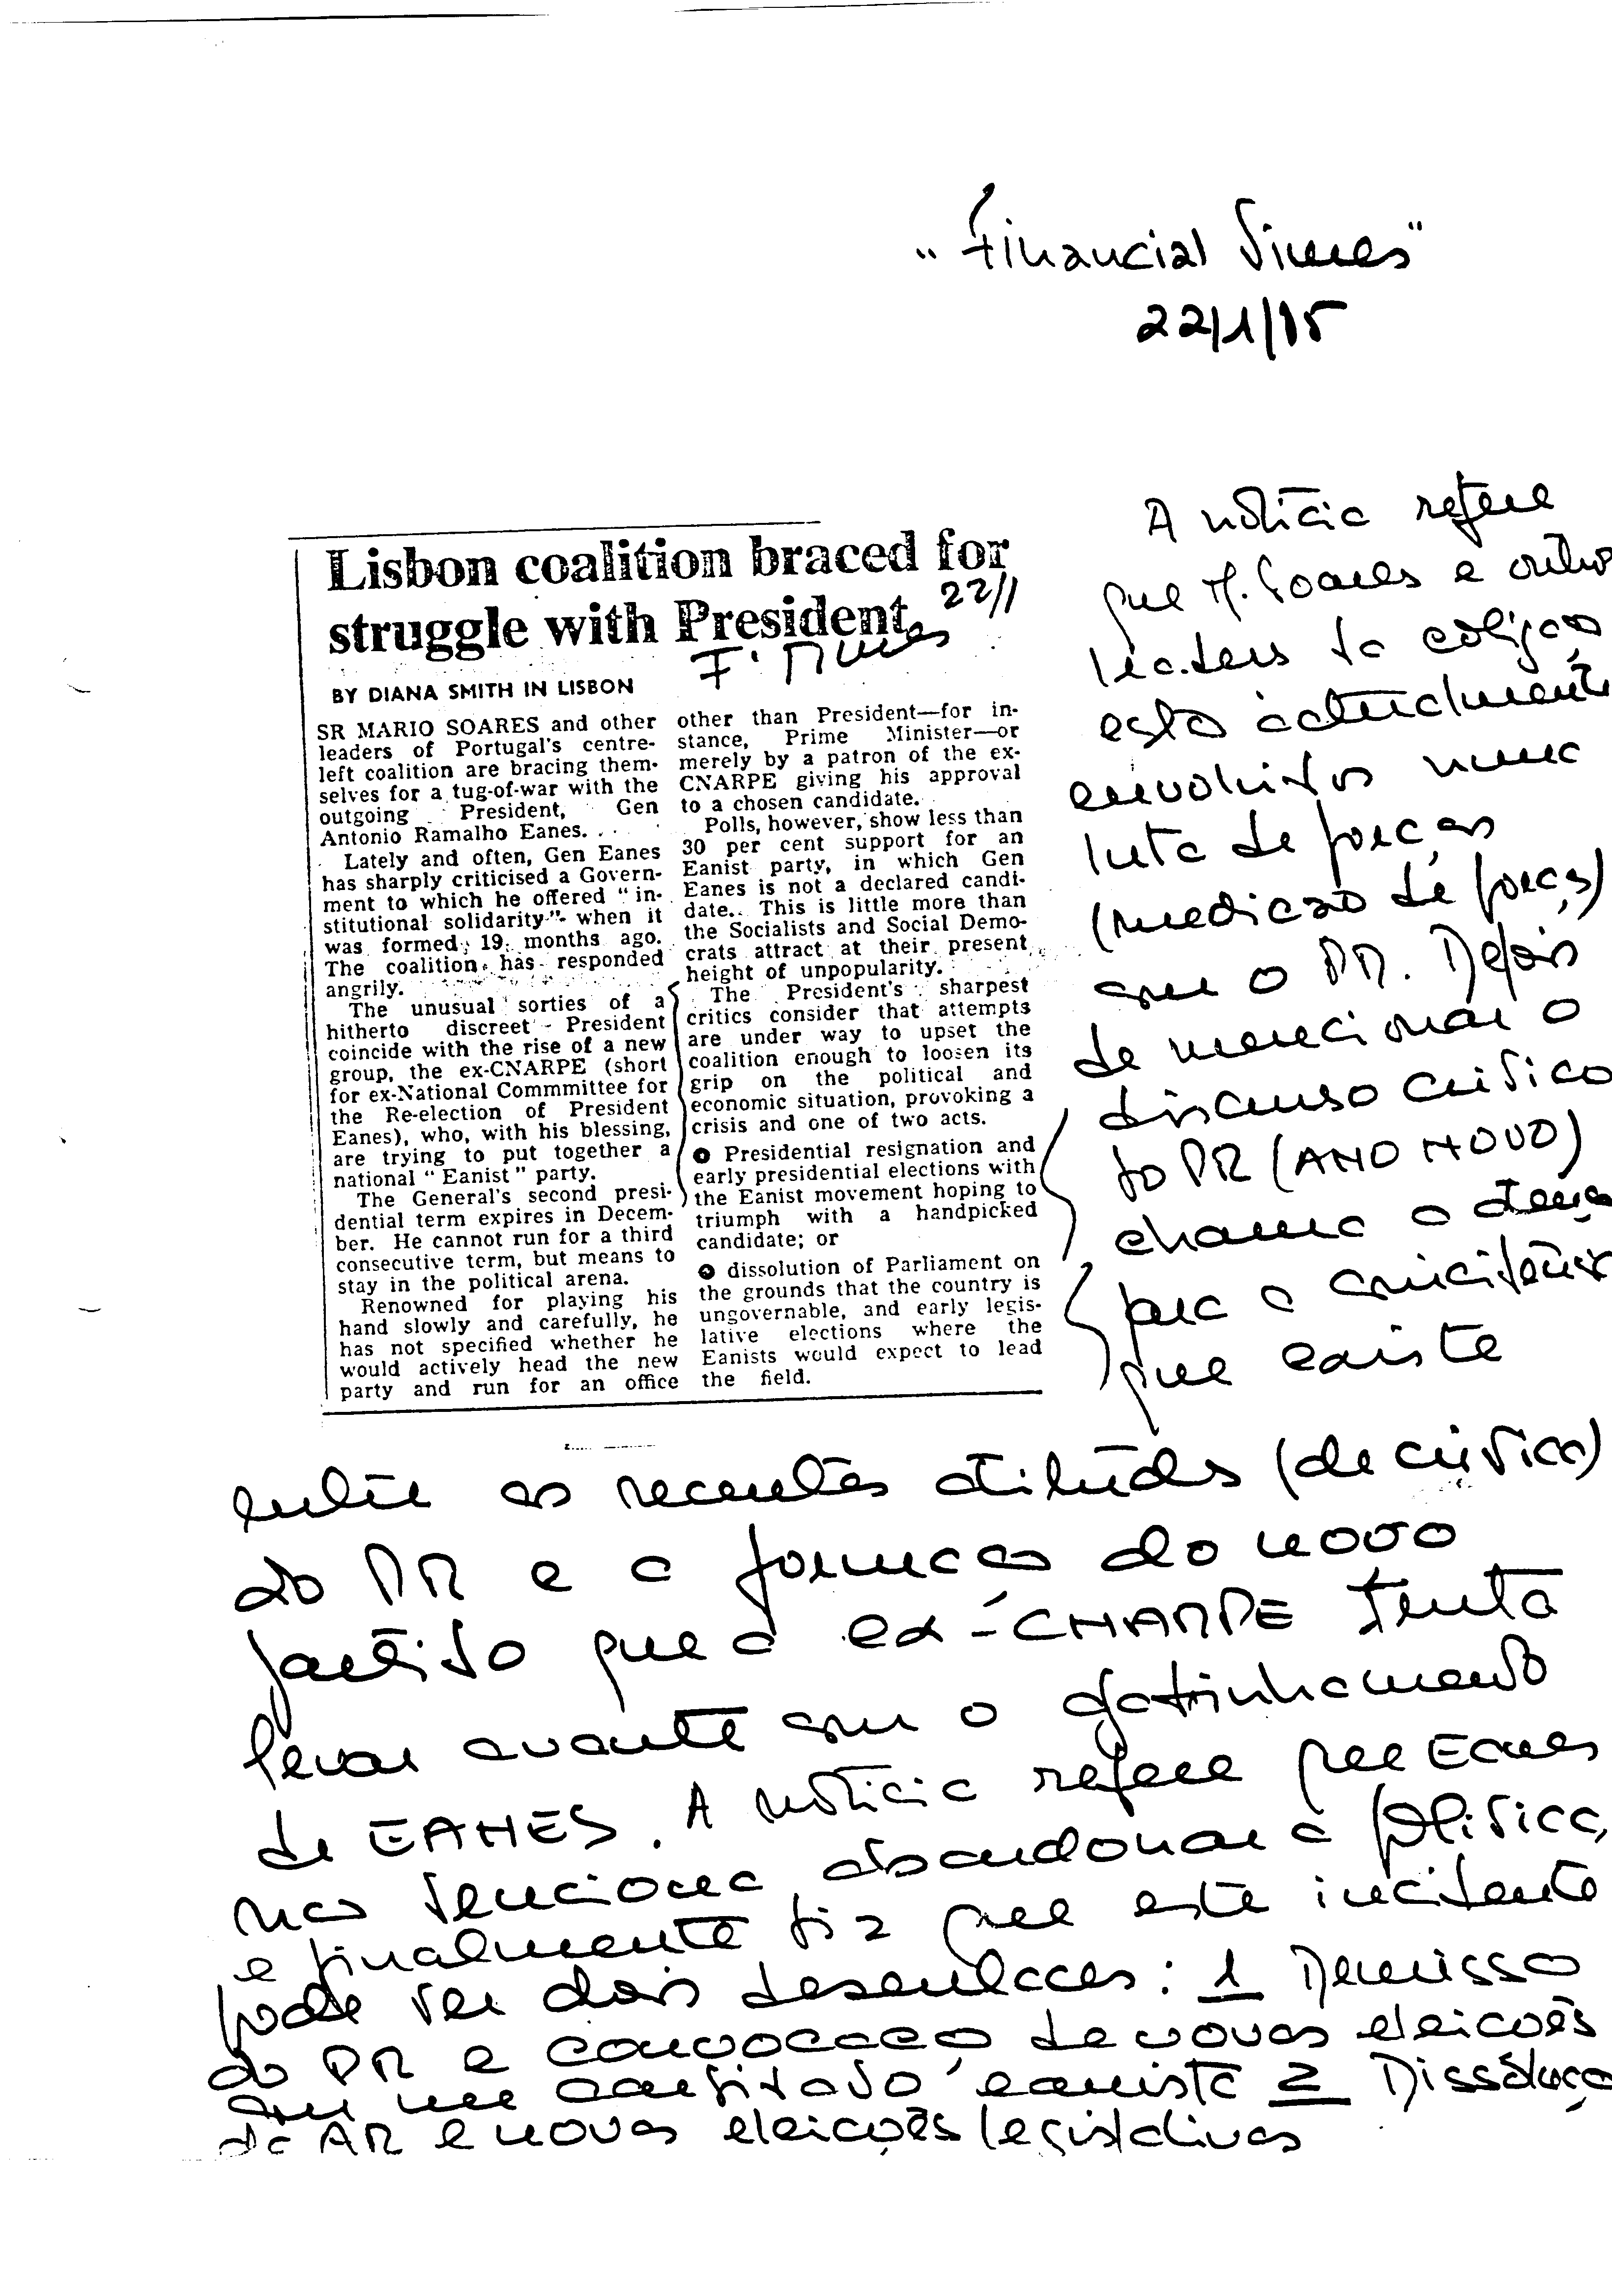 "Financial Times"
22/1/85
Lisbon coalition braced for
struggle with President
22/1
F. Times
BY DIANA SMITH IN LISBON
SR MARIO SOARES and other
leaders of Portugal's centre-
left coalition are bracing them-
selves for a tug-of-war with the
outgoing President, Gen
Antonio Ramalho Eanes.
Lately and often, Gen Eanes
has sharply criticised a Govern-
ment to which he offered "in-
stitutional solidarity" when it
was formed, 19 months ago.
The coalition has responded
angrily.
The unusual sorties of a
hitherto discreet President
coincide with the rise of a new
group, the ex-CNARPE (short
for ex-National Commmittee for
the Re-election of President
Eanes), who, with his blessing,
are trying to put together a
national "Eanist" party.
The General's second presi-
dential term expires in Decem-
ber. He cannot run for a third
consecutive term, but means to
stay in the political arena.
Renowned for playing his
hand slowly and carefully, he
has not specified whether he
would actively head the new
party and run for an office
other than President—for in-
stance, Prime Minister—or
merely by a patron of the ex-
CNARPE giving his approval
to a chosen candidate.
Polls, however, show less than
30 per cent support for an
Eanist party, in which Gen
Eanes is not a declared candi-
date. This is little more than
the Socialists and Social Demo-
crats attract at their present
height of unpopularity.
The President's sharpest
critics consider that attempts
are under way to upset the
coalition enough to loosen its
grip on the political and
economic situation, provoking a
crisis and one of two acts.
● Presidential resignation and
early presidential elections with
the Eanist movement hoping to
triumph with a handpicked
candidate; or
● dissolution of Parliament on
the grounds that the country is
ungovernable, and early legis-
lative elections where the
Eanists would expect to lead
the field.
A notícia refere
que M. Soares e outros
leaders da coligação
estão actualmente
envolvidos numa
luta de forças
(medição de forças)
com o PR. Depois
de mencionar o
discurso crítico
do PR (ANO NOVO)
chama a atenção
para a coincidência
que existe
entre as recentes atitudes (de crítica)
do PR e a formação do novo
partido que a ex-CNARPE tenta
levar avante com o apadrinhamento
de EANES. A notícia refere que Eanes
não tenciona abandonar a política,
e finalmente diz que este incidente
pode ter dois desenlaces: 1 Demissão
do PR e convocação de novas eleições
com um candidato eanista 2 Dissolução
da AR e novas eleições legislativas